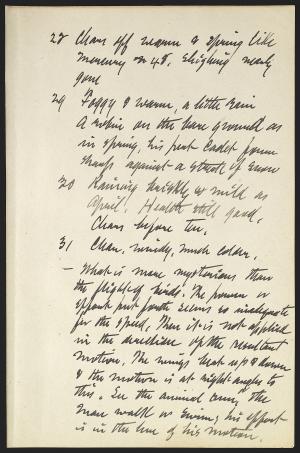 28 Clears off warm & spring like
mercury on 48, sleighing nearly
gone
29 Foggy & warm, a little rain
A robin on the bare ground as
in spring, his red form
sharp against a streak of snow
30 Raining briskly & mild as
April. Health still good.
Clears before ten.
31 Clear, windy, much colder.
— What is more mysterious than
the flight of birds. The power or
effort put forth seems so inadequate
for the speed. Then it is not applied
in the direction of the resultant
motion. The wings beat up & down
& the motion is at right angles to
this. In the animal, the
man walks or swims, his effort
is in the line of his motion.